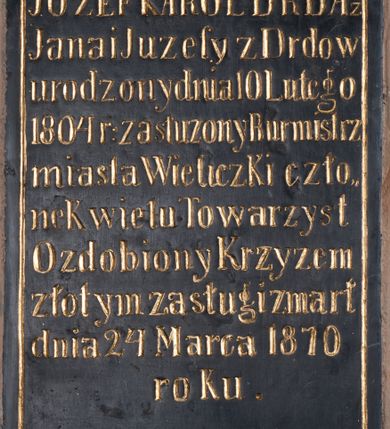 JÓZEF KAROL DRDA z
Jana i Juzefy z Drdow
urodzony dnia 10 Lutego
1804 r: zasłużony Burmistrz
miasta Wieliczki czło„
nek wielu Towarzyst
Ozdobiony Krzyzem
złotym zasługi zmarł
dnia 24 Marca 1870
roKu .